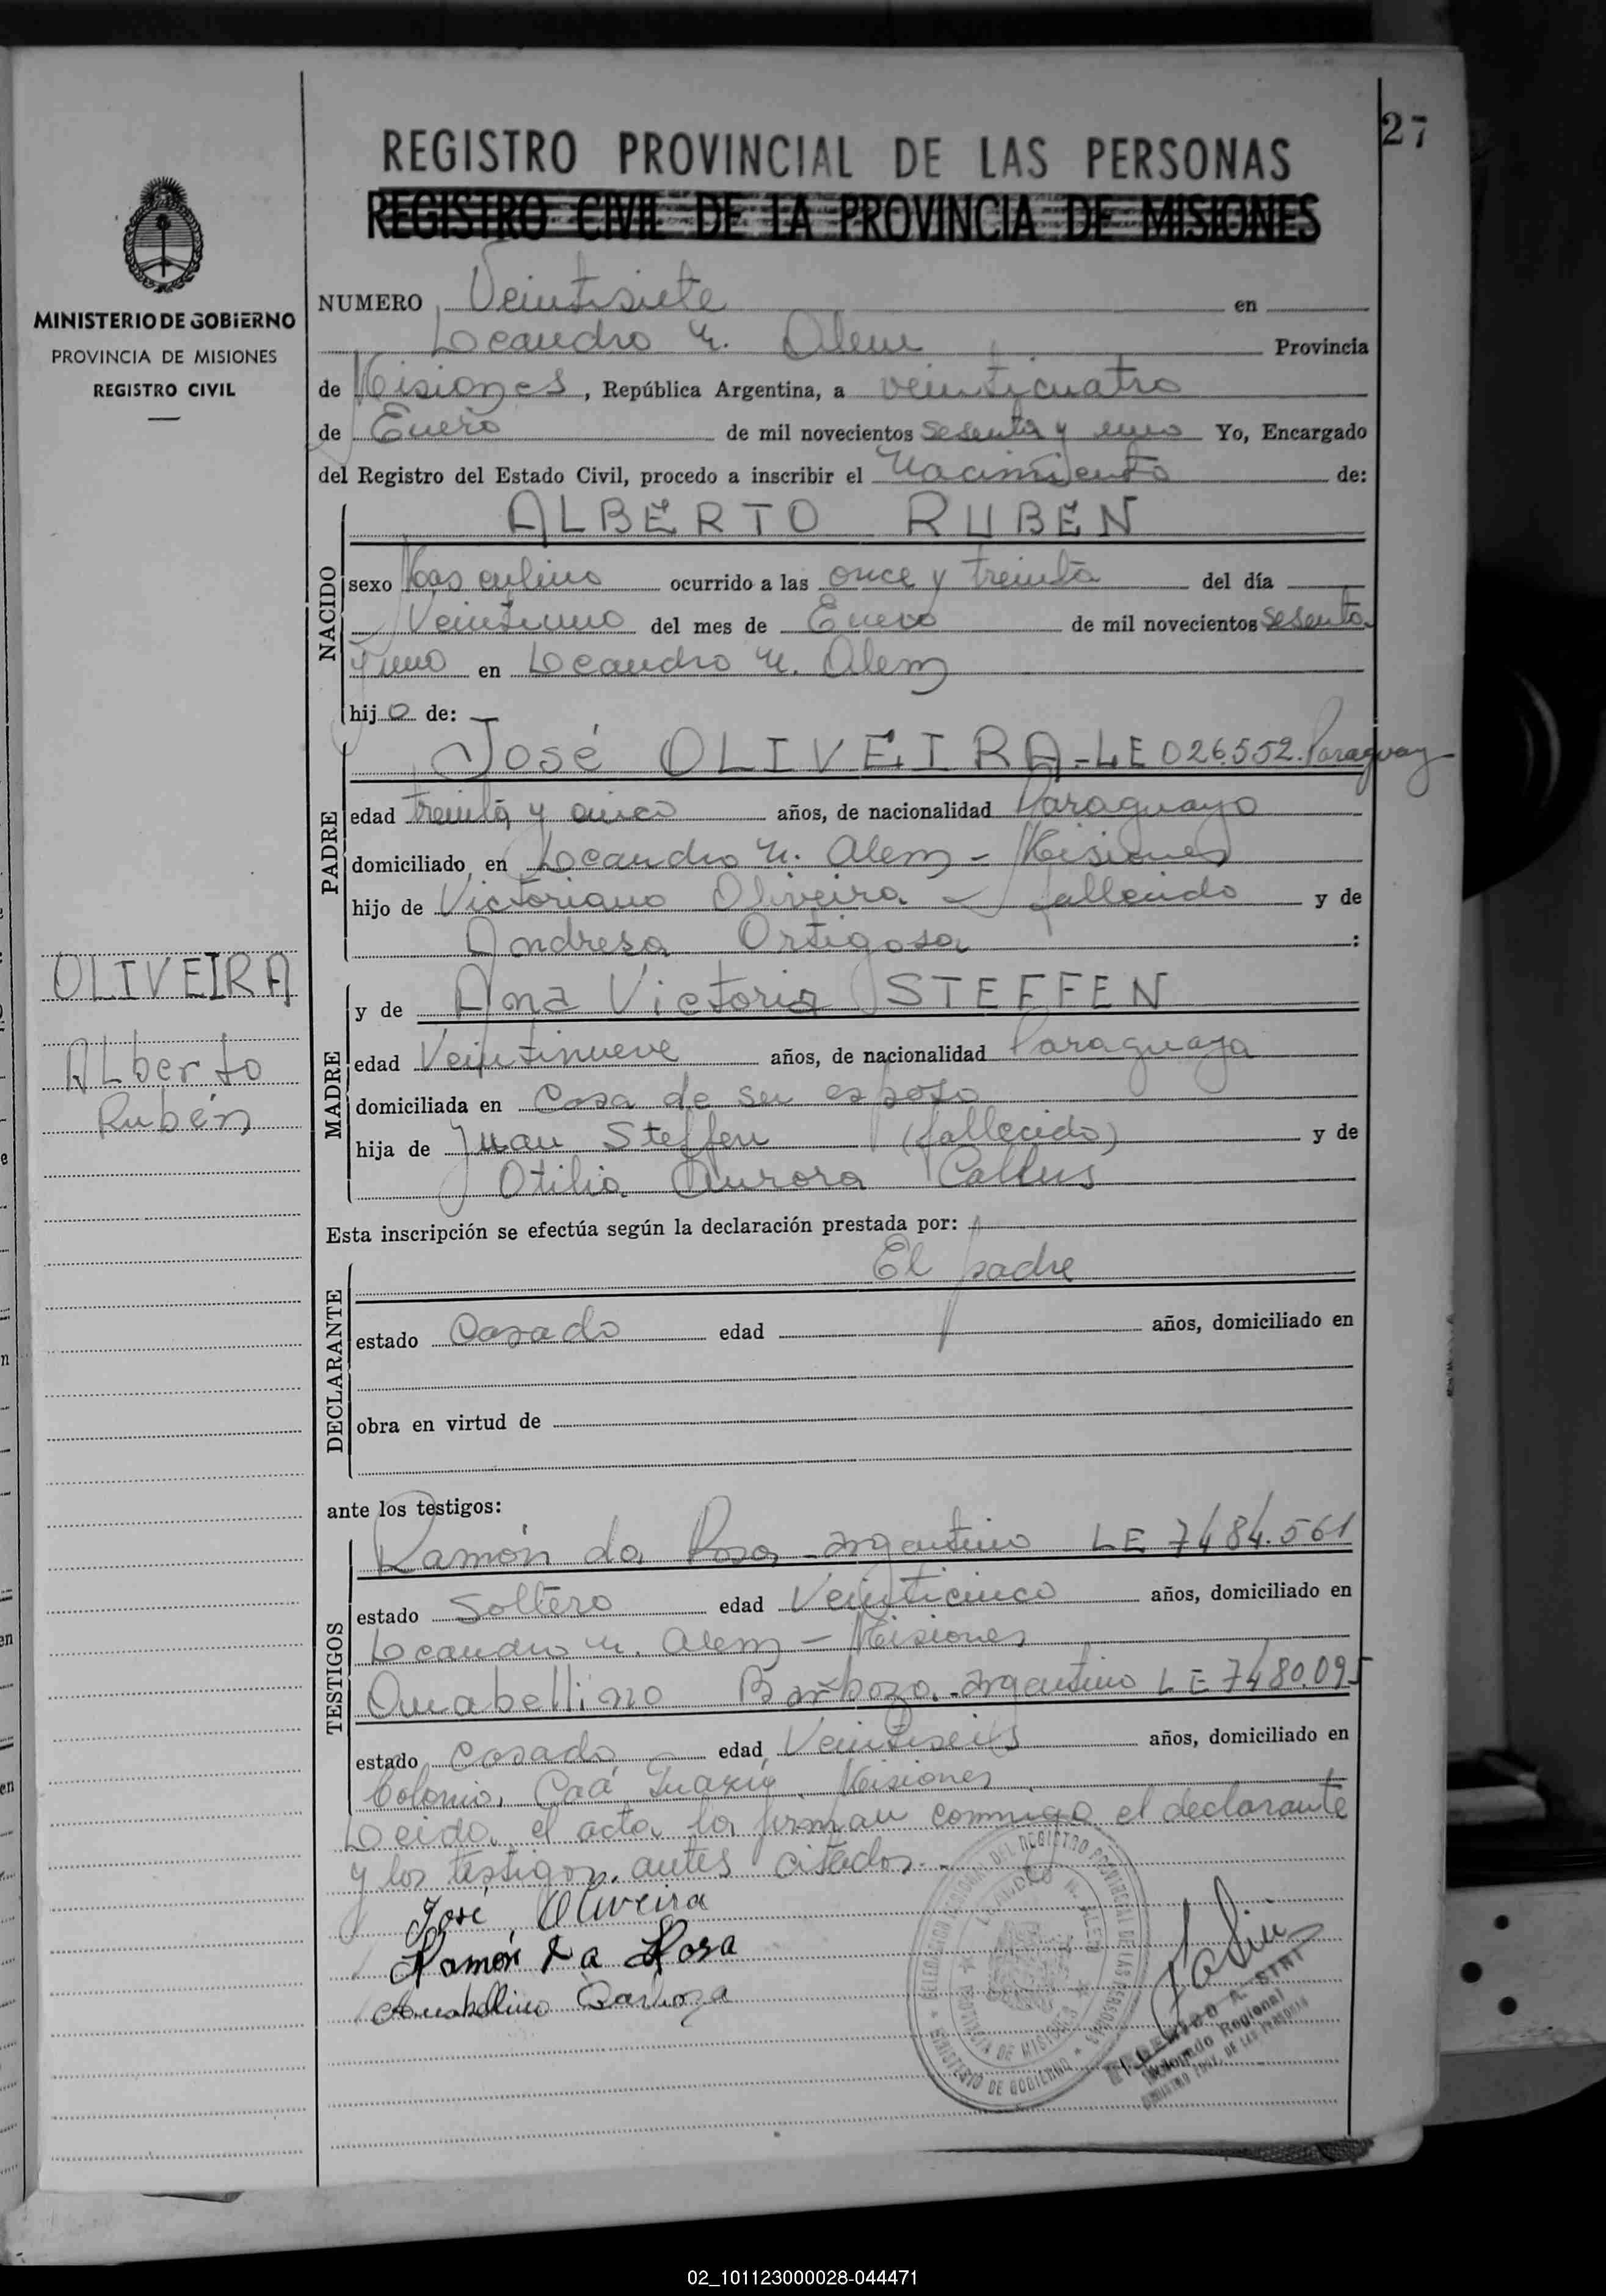 27
REGISTRO PROVINCIAL DE LAS PERSONAS
REGISTRO CIVIL DE LA PROVINCIA DE MISIONES
MINISTERIO DE GOBIERNO
PROVINCIA DE MISIONES
REGISTRO CIVIL
OLIVEIRA
Alberto
Rubén
NUMERO Veintisiete en
Leandro N. Alem Provincia
de Misiones, República Argentina, a veinticuatro
de Enero de mil novecientos sesenta y uno Yo, Encargado
del Registro del Estado Civil, procedo a inscribir el Nacimiento de:
NACIDO
ALBERTO RUBEN
sexo Masculino ocurrido a las once y treinta del día
Veintiuno del mes de Enero de mil novecientos sesenta
y uno en Leandro N. Alem
hijo de:
PADRE
José OLIVEIRA - LE 026.552. Paraguay
edad treinta y cinco años, de nacionalidad Paraguayo
domiciliado en Leandro N. Alem - Misiones
hijo de Victoriano Oliveira - fallecido y de
Andresa Ortigosa :
MADRE
y de Ana Victoria STEFFEN
edad Veintinueve años, de nacionalidad Paraguaya
domiciliada en Casa de su esposo
hija de Juan Steffen (fallecido) y de
Otilia Aurora
Esta inscripción se efectúa según la declaración prestada por:
DECLARANTE
El padre
estado Casado edad años, domiciliado en
obra en virtud de
ante los testigos:
TESTIGOS
Ramón da Rosa - argentino LE 7484.561
estado Soltero edad Veinticinco años, domiciliado en
Leandro N. Alem - Misiones
Anabellino Barboza - argentino LE 7480.095
estado Casado edad Veintiseis años, domiciliado en
Colonia Caá Guazú Misiones
Leida el acta la firman conmigo el declarante
y los testigos antes citados.-
José Oliveira
Ramón da Rosa
Anabellino Barboza
DELEGACION REGIONAL DEL REGISTRO PROVINCIAL DE LAS PERSONAS
LEANDRO N. ALEM
PROVINCIA DE MISIONES
MINISTERIO DE GOBIERNO
Delegado Regional
REGISTRO PROV. DE LAS PERSONAS
02_101123000028-044471